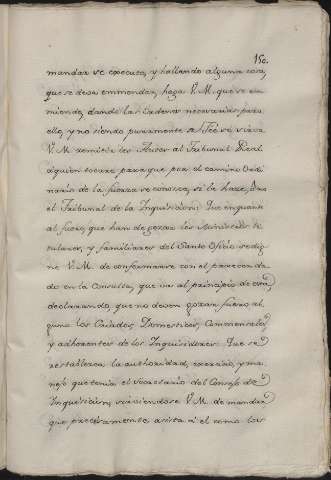 150.
mandar se execute, y hallando alguna cosa,
que se deva emmendar, haga V. M. que se en
miende, dando las ordenes necesarias para
ello, y no siendo puramente de Fee se sirva
V. M. remitir los Autos al Tribunal Real
à quien tocare para que por el camino Ordi
nario de la fuerza se conosca, si la hace, ò no
el Tribunal de la Inquisicion: Que en quanto
al fuero, que han de gozar los Ministros ti
tulares, y familiares del Santo Oficio se dig
ne V. M. de conformarse con el parecer da
do en la Consulta, que va al principio de esta
declarando, que no deven gozar fuero al
guno los Criados, Domesticos, Commensales
y adherentes de los Inquisidores: Que se
restablezca la authoridad, exercicio, y ma
nejo que tenia el Secretario del Consejo de
Inquisicion, sirviendose V. M. de mandar
que precisamente asista à el como los